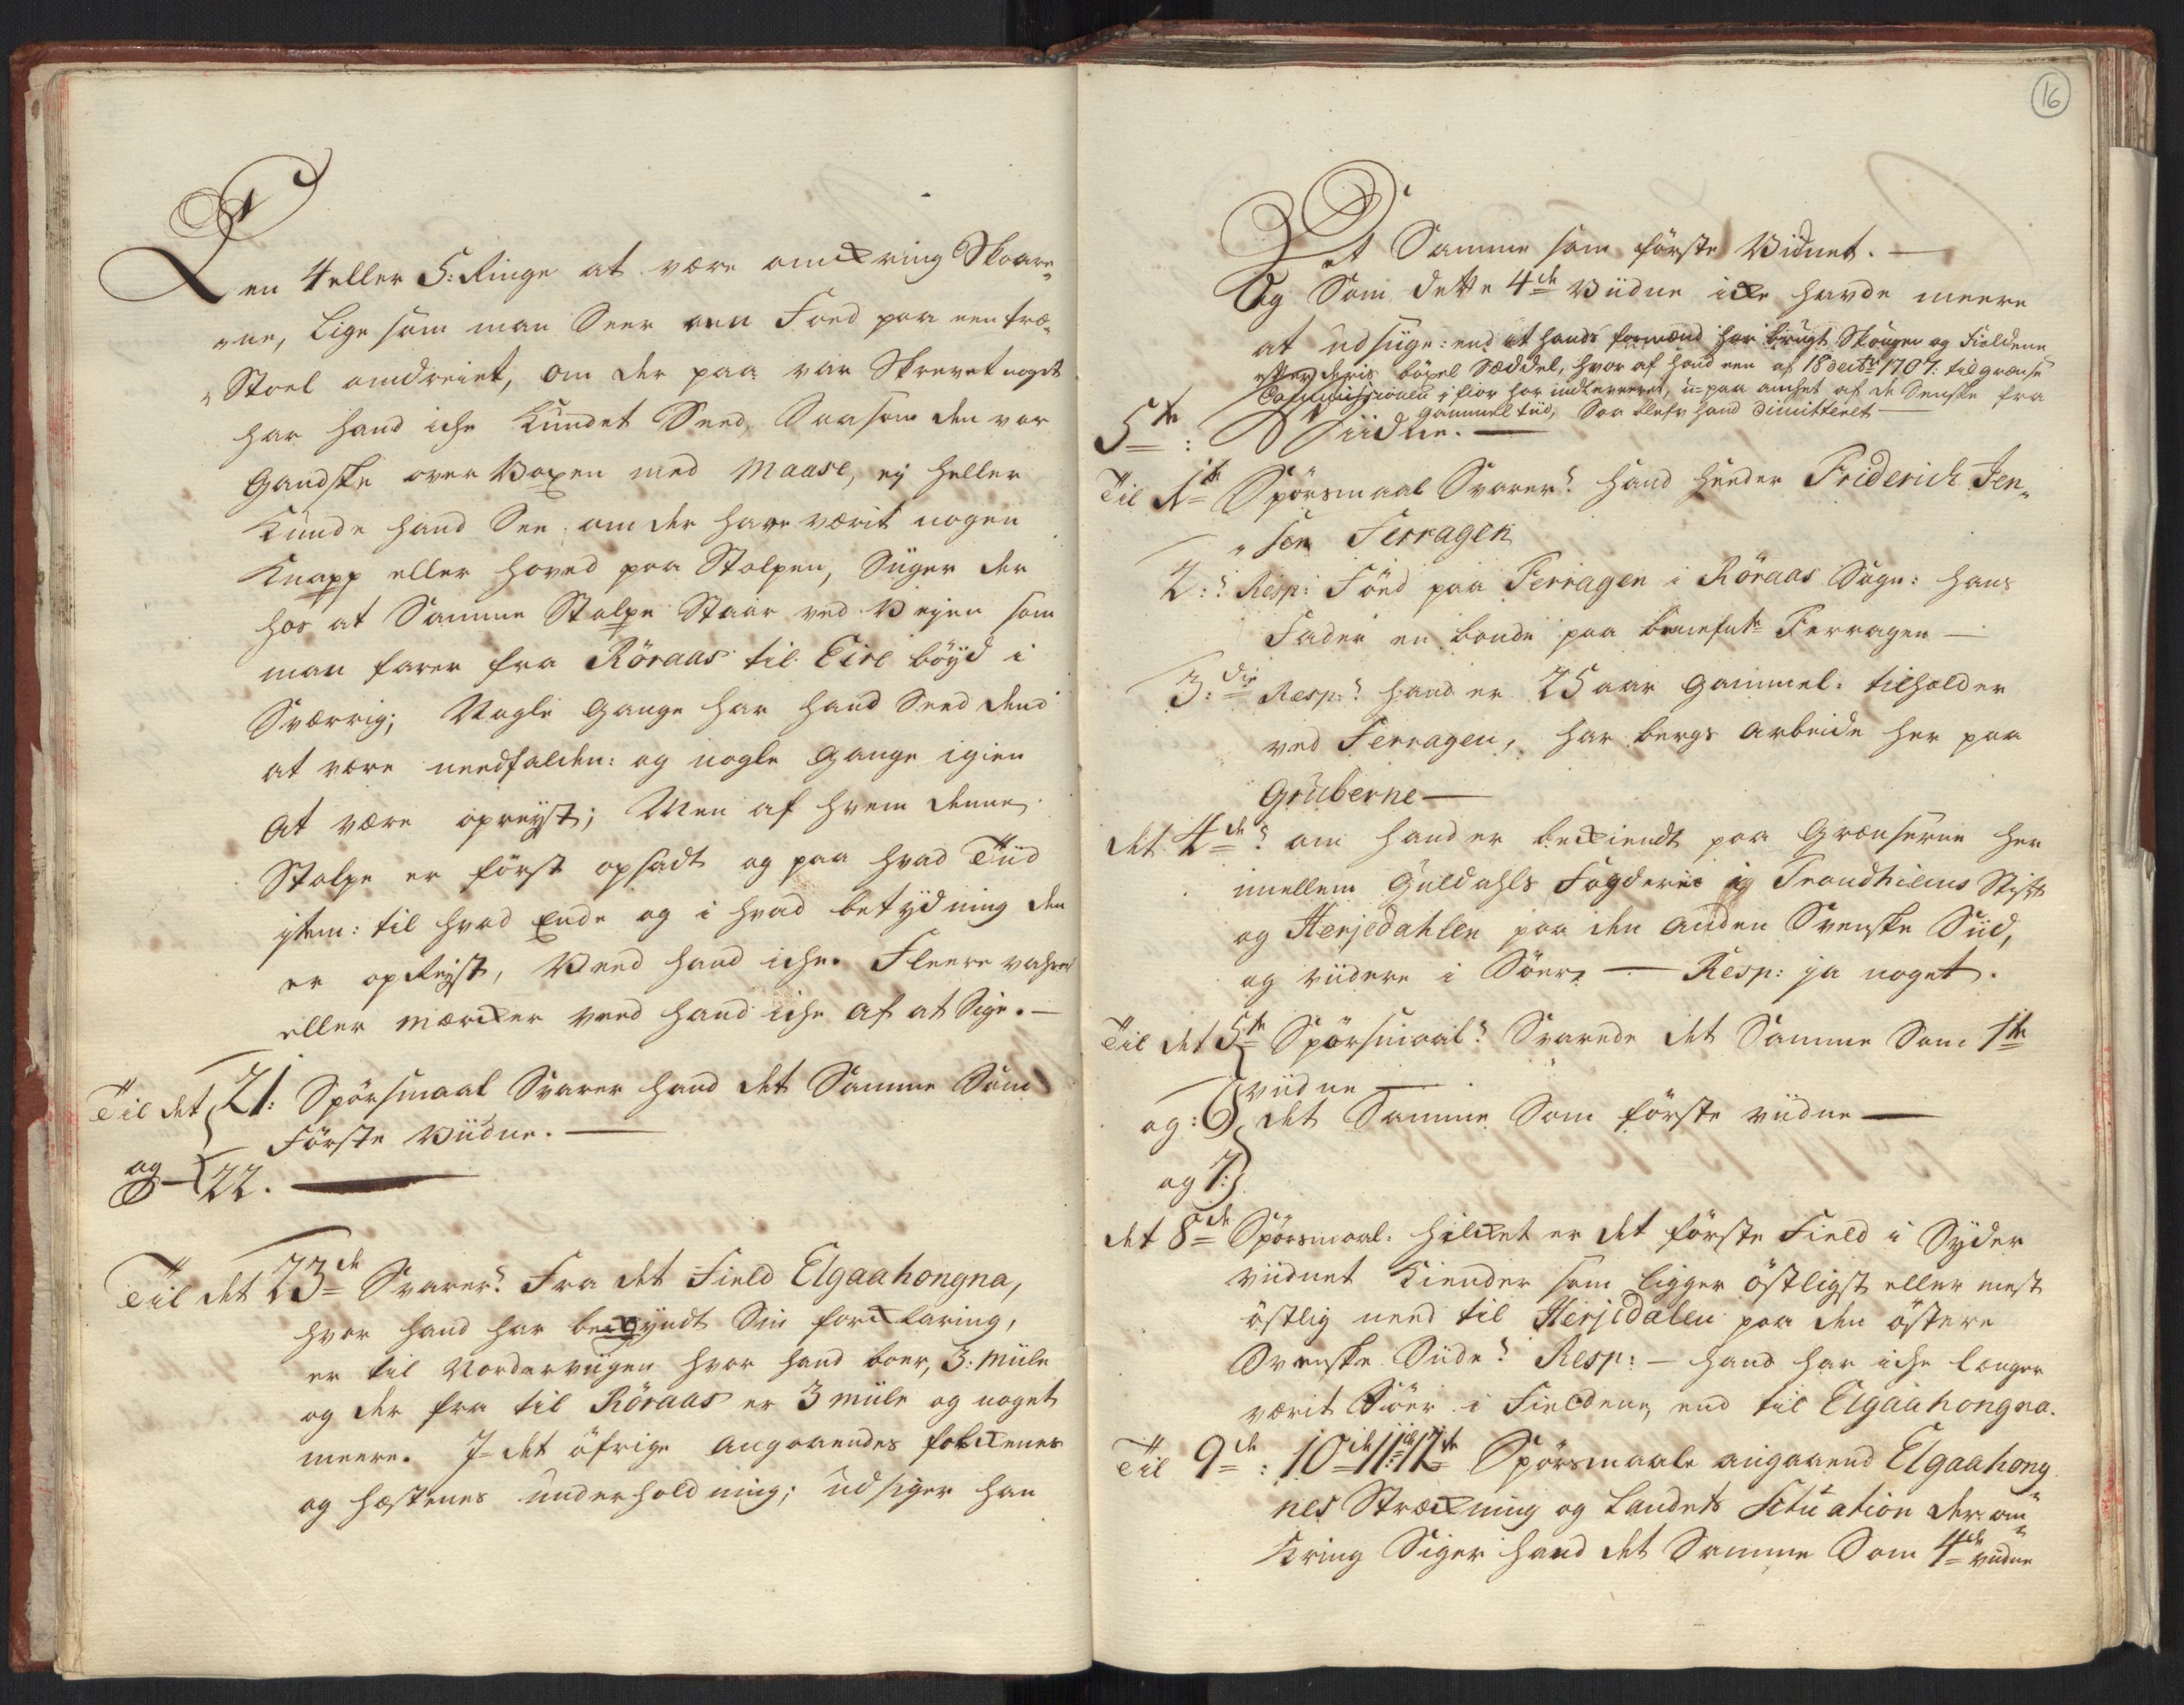 En 4 eller 5: Ringe at være omkring Skaare„
„ne, Lige som man Seer een Foed paa een træ„
„Stoel omdreiet, om der paa var Skrevet noget
har hand iche Kundet Seed, Saasom den var
Gandske over Voxen med Maase, ej heller
Kunde hand See om der have værit nogen
Knapp eller hoved paa Stolpen, Siiger der
hos at Samme Stolpe Staar ved Vejen som
man farer fra Röraas til Eire böyd i
Sværrig; Nogle Gange har hand Seed dend
at være needfalden: og nogle Gange igien
at være opreyst; Men af hvem denne
Stolpe er först opsadt og paa hvad Tiid
jtem: til hvad Ende og i hvad betydning den
er opReyst, Veed hand iche. Fleere
eller Mærker veed hand iche af at Sige. —
Til det 21: Spörsmaal Svarer hand det Samme Som
Förste Viidne. —
og — 22. —
Til det 23de Svarer? Fra det Field Elgaahongna,
hvor hand har begyndt Sin forklaring,
er til Nordervigen hvor hand boer, 3: Miile
og der fra til Röraas er 3 miile og noget
meere. J det öfrige angaaendes folkenes
og hæstenes underholdning; udsiger han
16
Det Samme som förste Vidnet. —
Og Som dette 4de Viidne icke havde meere
at udsiige: end at hands formænd har brugt Skougen og Fieldene
efter deris böxel Sæddel, hvor af hand een af 18 decbr 1707: til grænse
Commissionen i fior har indleveret, u-paa anchet af de Senske fra
gammel tiid, Saa blefv hand dimitteret —
5te: Viidne. —
Til 1te Spörsmaal Svarer? hand heeder Friderich Jen„
„sen Ferragen
2:? Resp: Föed paa Ferragen i Röraas Sogn: hans
Fader en bonde paa bemelte Ferragen —
3:die Resp:? hand er 25 aar Gammel: tilholder
ved Ferragen, har bergs arbeide her paa
Gruberne —
det 4de? om hand er bekiendt paa Grænserne her
imellem Guldahls Fogderie i Trondhiems Stift
og Herjedahlen paa den anden Svenske Siid,
og viidere i Söer, — Resp: ja noget.
Til det 5te Spörsmaal? Svarede det Samme Som 1te
viidne —
og: 6 det Samme Som förste viidne —
og 7:
det 8de Spörsmaal: hvilket er det förste Field i Syder
viidnet Kiender som ligger östligst eller mest
östlig need til Herjedalen paa den östere
Svenske Siide? Resp: — hand har iche længer
værit Söer i Fieldene, end til Elgaahongna.
Til 9de: 10de 11te 12te Spörsmaale angaaend Elgaahong„
nes Strækning og Landets Situation der om„
Kring Siger hand det Samme Som 4de viidne